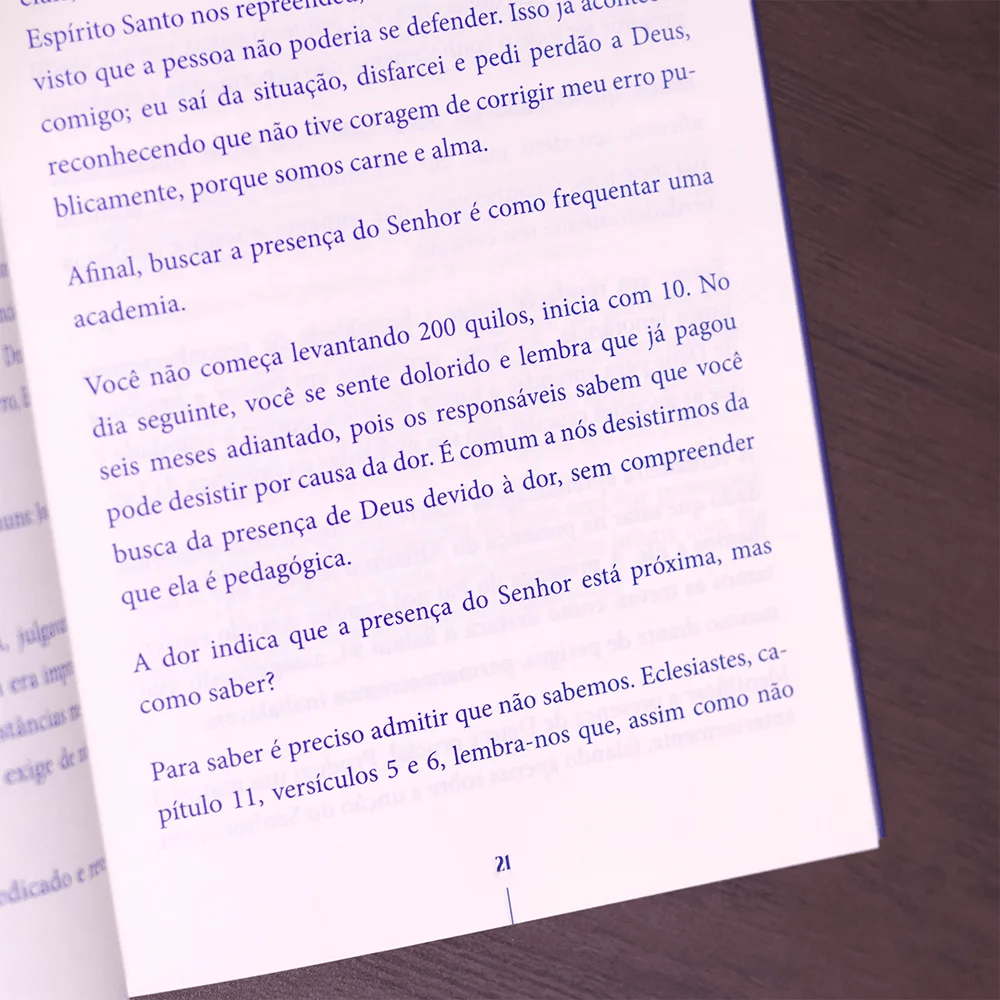 Espírito Santo nos repreendeu,
visto que a pessoa não poderia se defender. Isso já
comigo; eu saí da situação, disfarcei e pedi perdão a Deus,
reconhecendo que não tive coragem de corrigir meu erro pu-
blicamente, porque somos carne e alma.
Afinal, buscar a presença do Senhor é como frequentar uma
academia.
Você não começa levantando 200 quilos, inicia com 10. No
dia seguinte, você se sente dolorido e lembra que já pagou
seis meses adiantado, pois os responsáveis sabem que você
pode desistir por causa da dor. É comum a nós desistirmos da
busca da presença de Deus devido à dor, sem compreender
que ela é pedagógica.
A dor indica que a presença do Senhor está próxima, mas
como saber?
Para saber é preciso admitir que não sabemos. Eclesiastes, ca-
pítulo 11, versículos 5 e 6, lembra-nos que, assim como não
21
julgau
era imp
stâncias
exige de